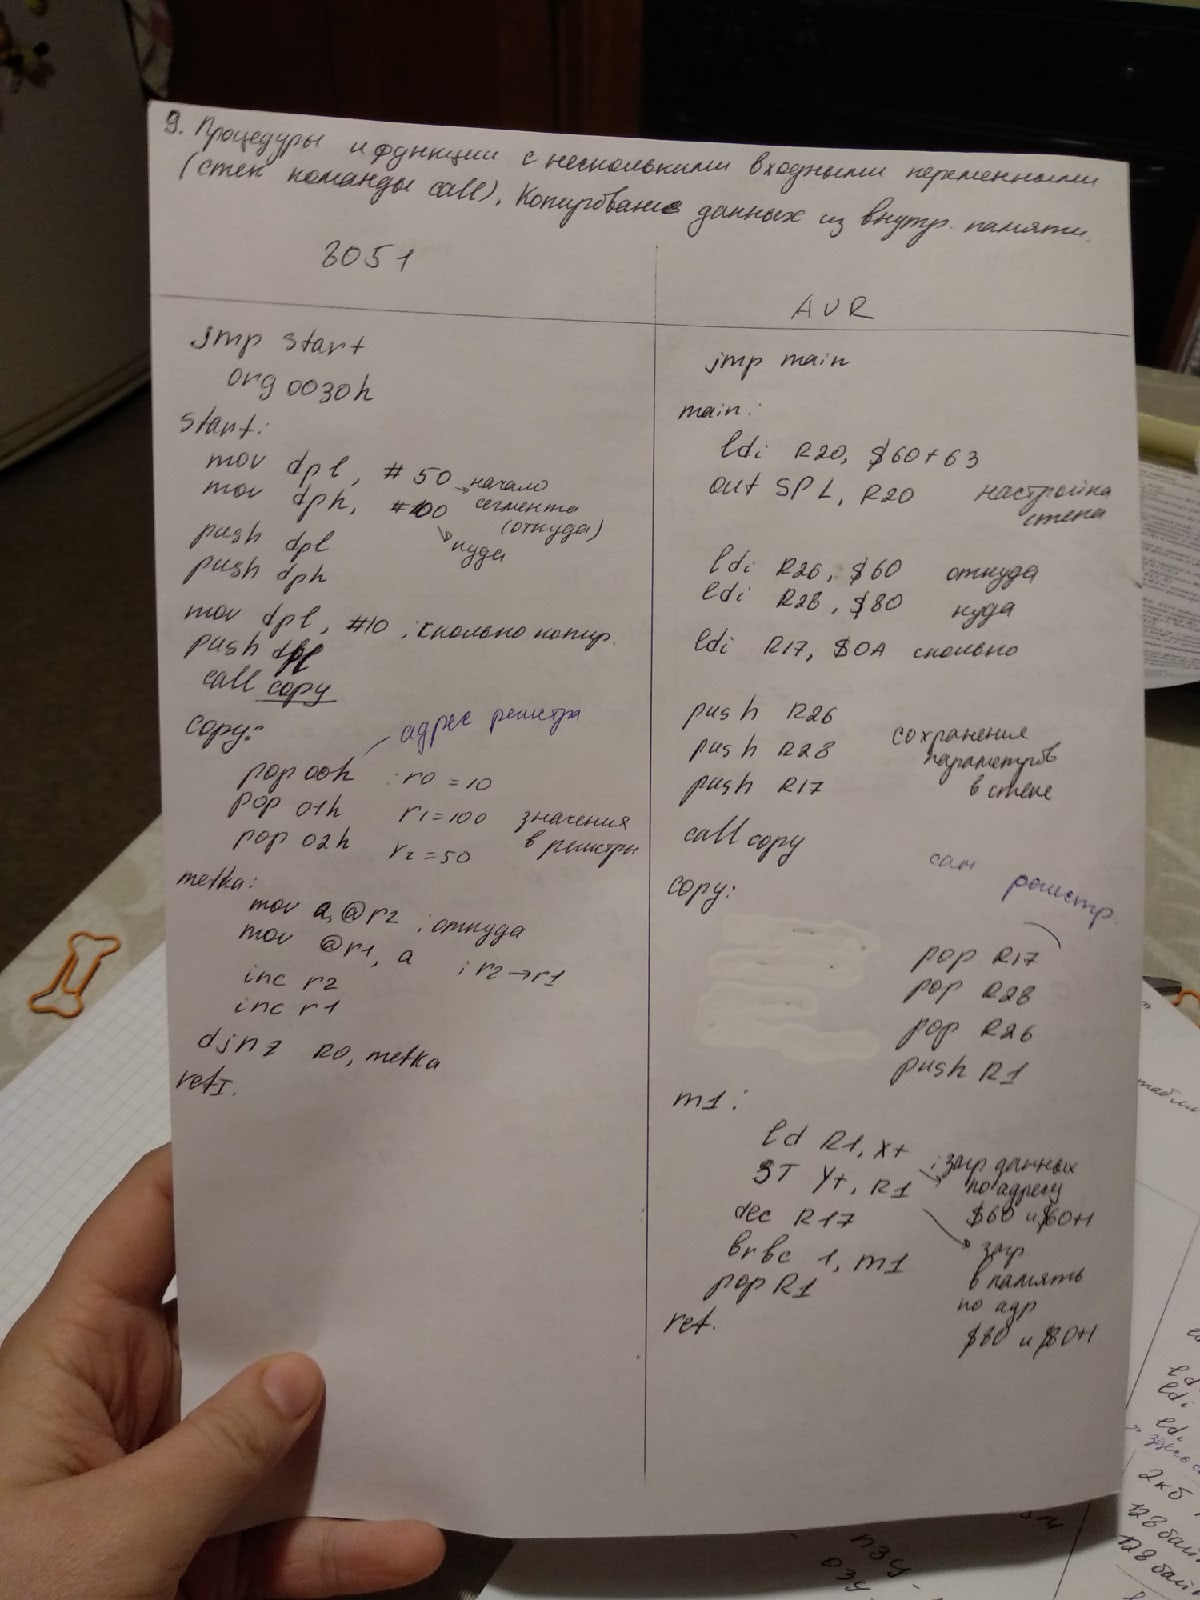 9. Процедуры и функции с несколькими входными переменными
(стек команды call). Копирование данных из внутр. памяти.
8051
jmp start
org 0030h
start:
mov dpl, #50 начало
сегмента
(откуда)
mov dph, #100
куда
push dpl
push dph
mov dpl, #10 ; сколько копир.
push dpl
call copy
copy: адрес регистра
pop 00h ; r0 = 10
pop 01h r1=100 значения
pop 02h r2=50 в регистры
metka:
mov a, @r2 ; откуда
mov @r1, a ; r2→r1
inc r2
inc r1
djnz R0, metka
retI.
AVR
jmp main
main:
ldi R20, $60+63
out SPL, R20 настройка
стека
ldi R26, $60 откуда
ldi R28, $80 куда
ldi R17, $0A сколько
push R26 сохранения
push R28 параметров
push R17 в стеке
call copy
copy: сам регистр.
pop R17
pop R28
pop R26
push R1
m1:
ld R1, X+ ; загр данных
ST Y+, R1 по адресу
dec R17 $60 и $60+1
brbc 1, m1 загр
pop R1 в память
по адр
ret. $80 и $80+1
2кб
128 байт
128 байт
ПЗУ
ОЗУ